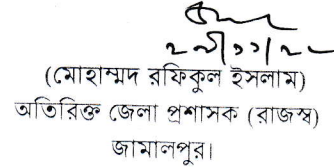 (মোহাম্মদ রফিকুল ইসলাম)
অতিরিক্ত জেলা প্রশাসক (রাজস্ব)
জামালপুর।